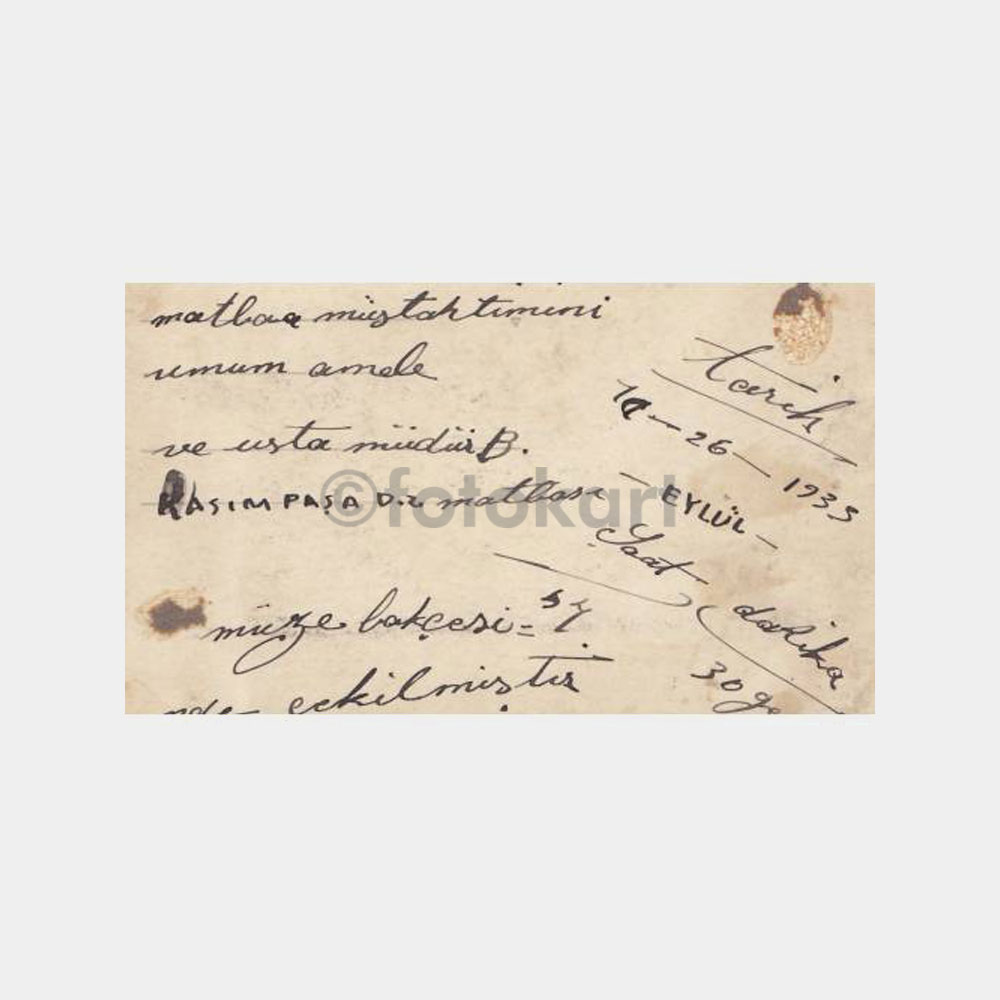 matbaa müstahtimini
umum amele
ve usta müdür B.
KASIMPAŞA D.z matbası
müze bahçesi =
çekilmiştir
tarih
26 — 1935
— EYLÜL —
Saat
dakika
30
©fotokart